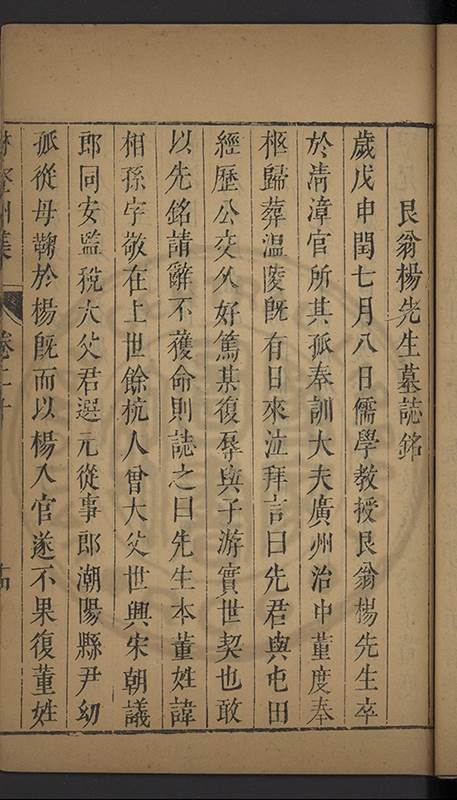 艮翁楊先生墓誌銘
歲戊申閏七月八日儒學教授艮翁楊先生卒
於清漳官所其孤奉訓大夫廣州治中董度奉
柩歸葬温陵旣有日來泣拜言曰先君與屯田
經歷公交久好篤某復辱與子游實世契也敢
以先銘請辭不獲命則誌之曰先生本董姓諱
相孫字敬在上世餘杭人曾大父世興宋朝議
郎同安監税大父君選元從事郎潮陽縣尹幼
孤從母鞠於楊旣而以楊入官遂不果復董姓
卷二十